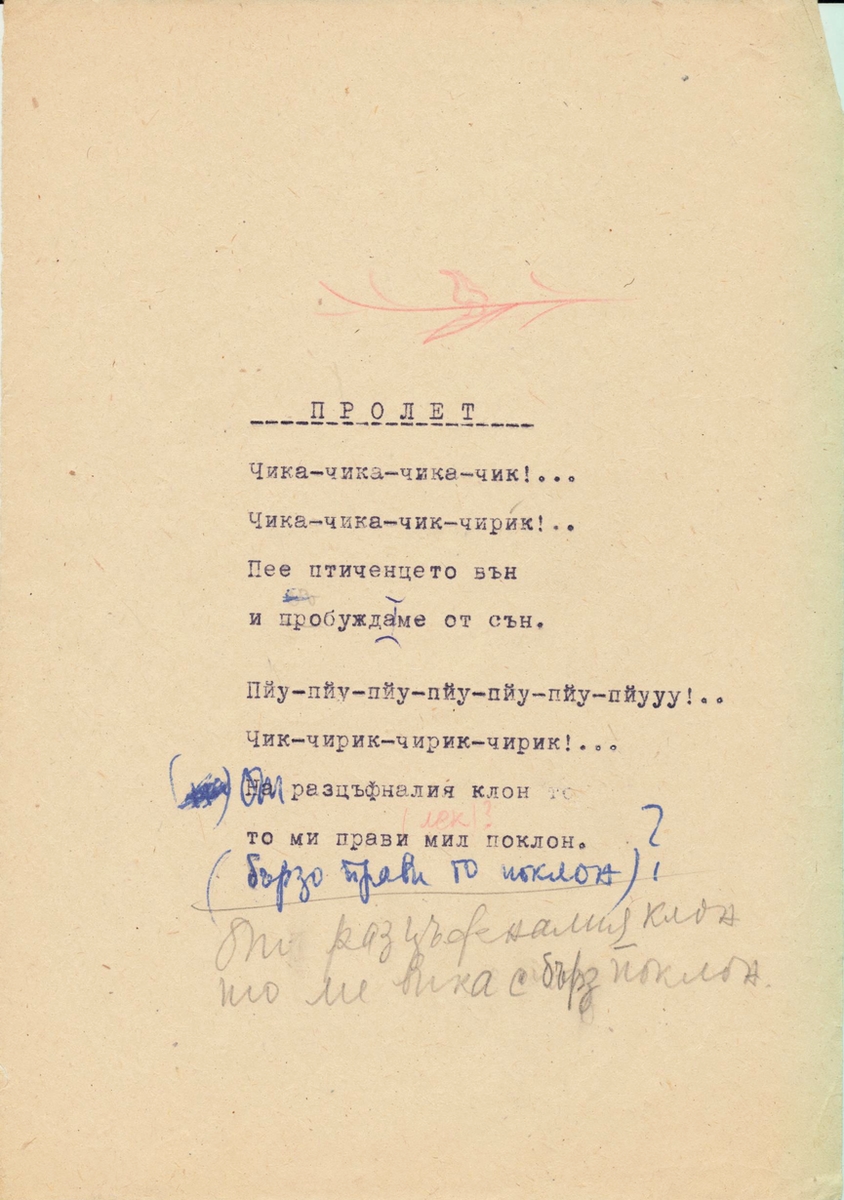 ПРОЛЕТ
Чика-чика-чика-чик!...
Чика-чика-чик-чирик!..
Пее птиченцето вън
и пробуждаме от сън.
Пйу-пйу-пйу-пйу-пйу-пйу-пйууу!..
Чик-чирик-чирик-чирик!...
( ) От
На разцъфналия клон то
(лек)?
то ми прави мил поклон. ?
(бързо прави то поклон)!
От разцъфналия клон
то ме вика с бърз поклон.